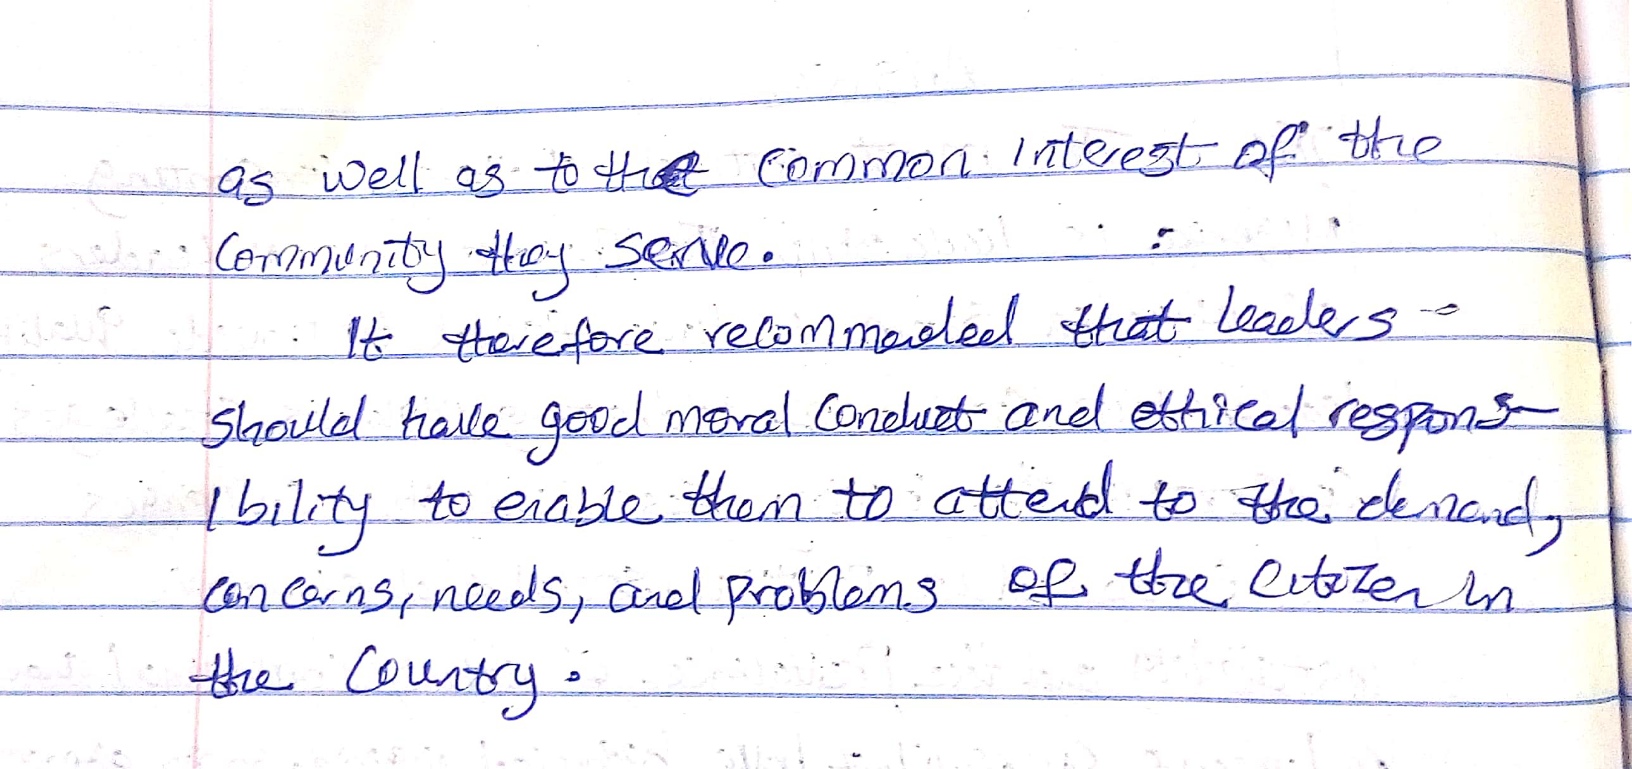 as well as to the common interest of the
Community they serve.
It therefore recommended that leaders -
should have good moral conduct and ethical respons-
ibility to enable them to attend to the demand,
concerns, needs, and problems of the citizen in
the country.